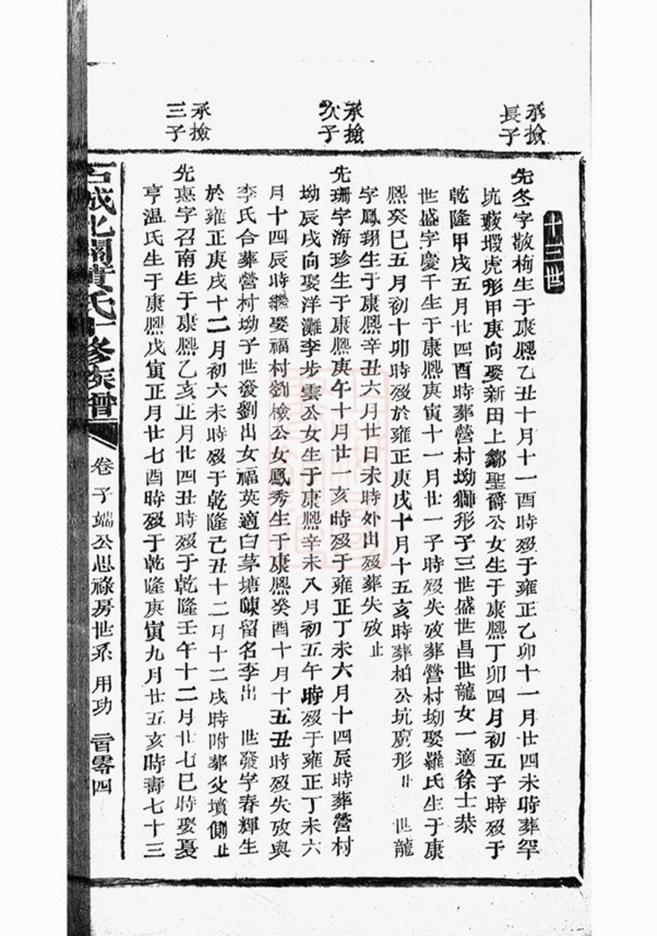 十三世
承撿
長子
先冬字敬梅生于康熙乙丑十月十一酉時歿于雍正乙卯十一月廿四未時葬罕
坑藪瑕虎形甲庚向娶新田上鄒聖爵公女生于康熙丁卯四月初五子時歿于
乾隆甲戌五月廿四酉時葬營村坳獅形子三世盛世昌世龍女一適徐士恭
世盛字慶千生于康熙庚寅十一月廿一子時歿失攷葬營村坳娶羅氏生于康
熙癸巳五月初十卯時歿於雍正庚戌十月十五亥時葬柏公坑窩形止 世龍
字鳳翱生于康熙辛丑六月廿日未時外出歿葬失攷止
承撿
次子
先珊字海珍生于康熙庚午十月廿一亥時歿于雍正丁未六月十四辰時葬營村
坳辰戌向娶洋灘李步雲公女生于康熙辛未八月初五午時歿于雍正丁未六
月十四辰時繼娶福村劉檢公女鳳秀生于康熙癸酉十月十五丑時歿失攷與
李氏合葬營村坳子世發劉出女福英適白茅塘陳留名李出 世發字春輝生
於雍正庚戌十二月初六未時歿于乾隆己丑十二月十二戌時附葬父墳側止
承撿
三子
先惠字召南生于康熙乙亥正月廿四丑時歿于乾隆壬午十二月廿七巳時娶憂
亨溫氏生于康熙戊寅正月廿七酉時歿于乾隆庚寅九月廿五亥時壽七十三
石城北關黃氏十修族譜
卷子端公思祿房世系 用功 二百零四